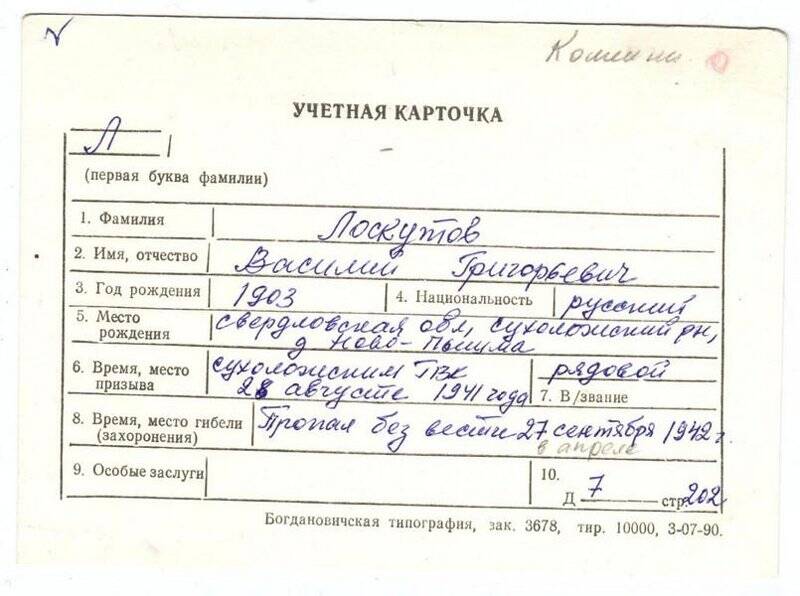 УЧЕТНАЯ КАРТОЧКА
Л
(первая буква фамилии)
1. Фамилия Лоскутов
2. Имя, отчество Василий Григорьевич
3. Год рождения 1903 4. Национальность русский
5. Место рождения свердловская обл, сухоложский рн,
д Ново-Пышма
6. Время, место призыва сухоложским ГВК
28 августе 1941 года
рядовой
7. В/звание
8. Время, место гибели (захоронения) Пропал без вести 27 сентября 1942 г.
в апреле
9. Особые заслуги
10.
Д 7 стр. 202
Богдановичская типография, зак. 3678, тир. 10000, 3-07-90.